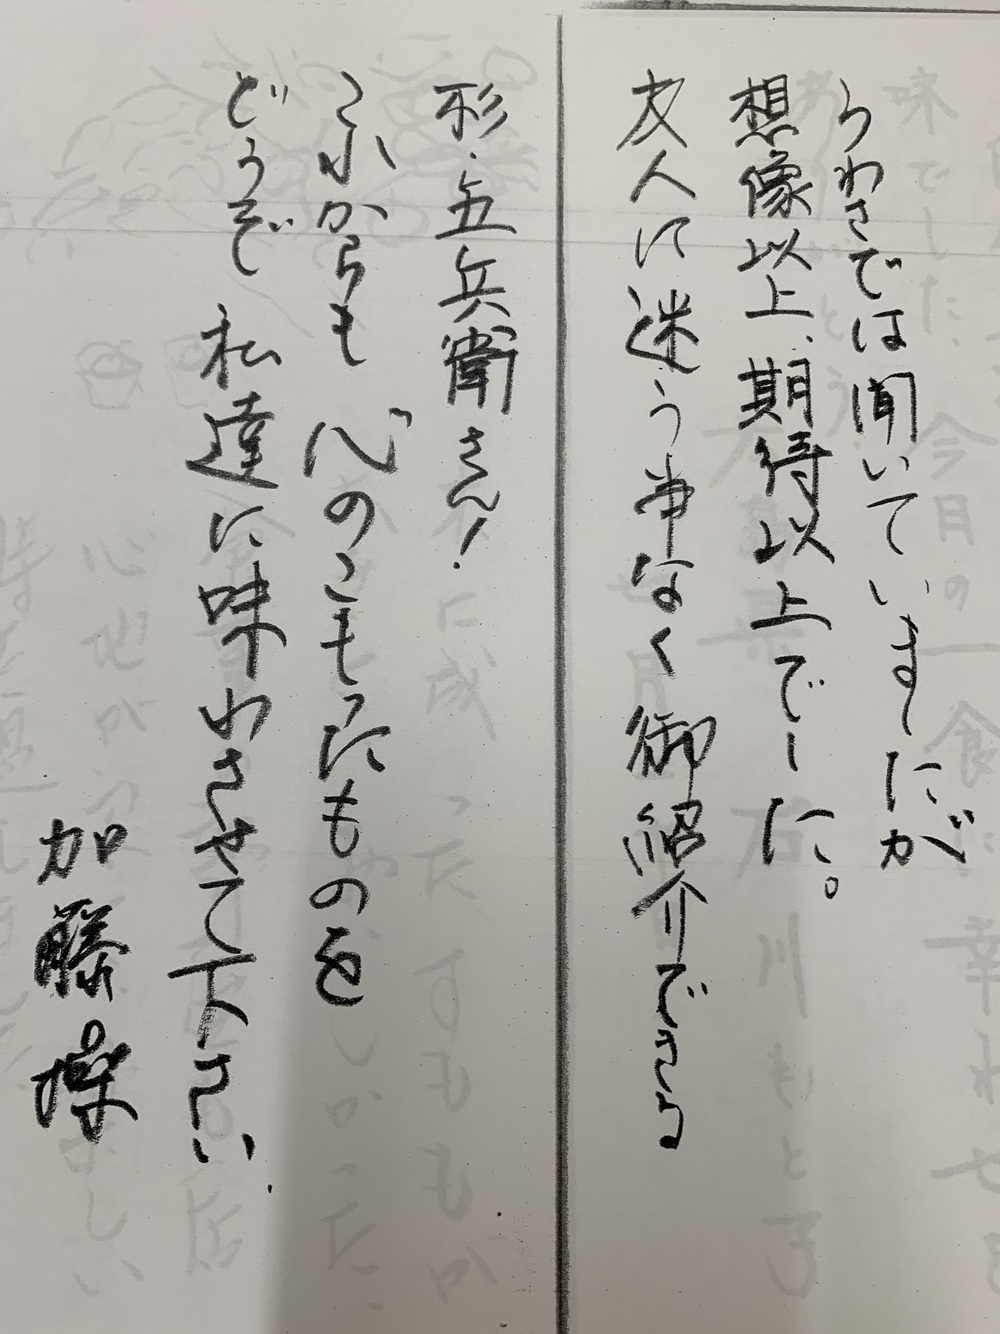 うわさでは聞いていましたが
想像以上、期待以上でした。
友人に迷う事なく御紹介できる
杉・五兵衛さん!
これからも 心のこもったものを
どうぞ 私達に味わさせて下さい
加藤